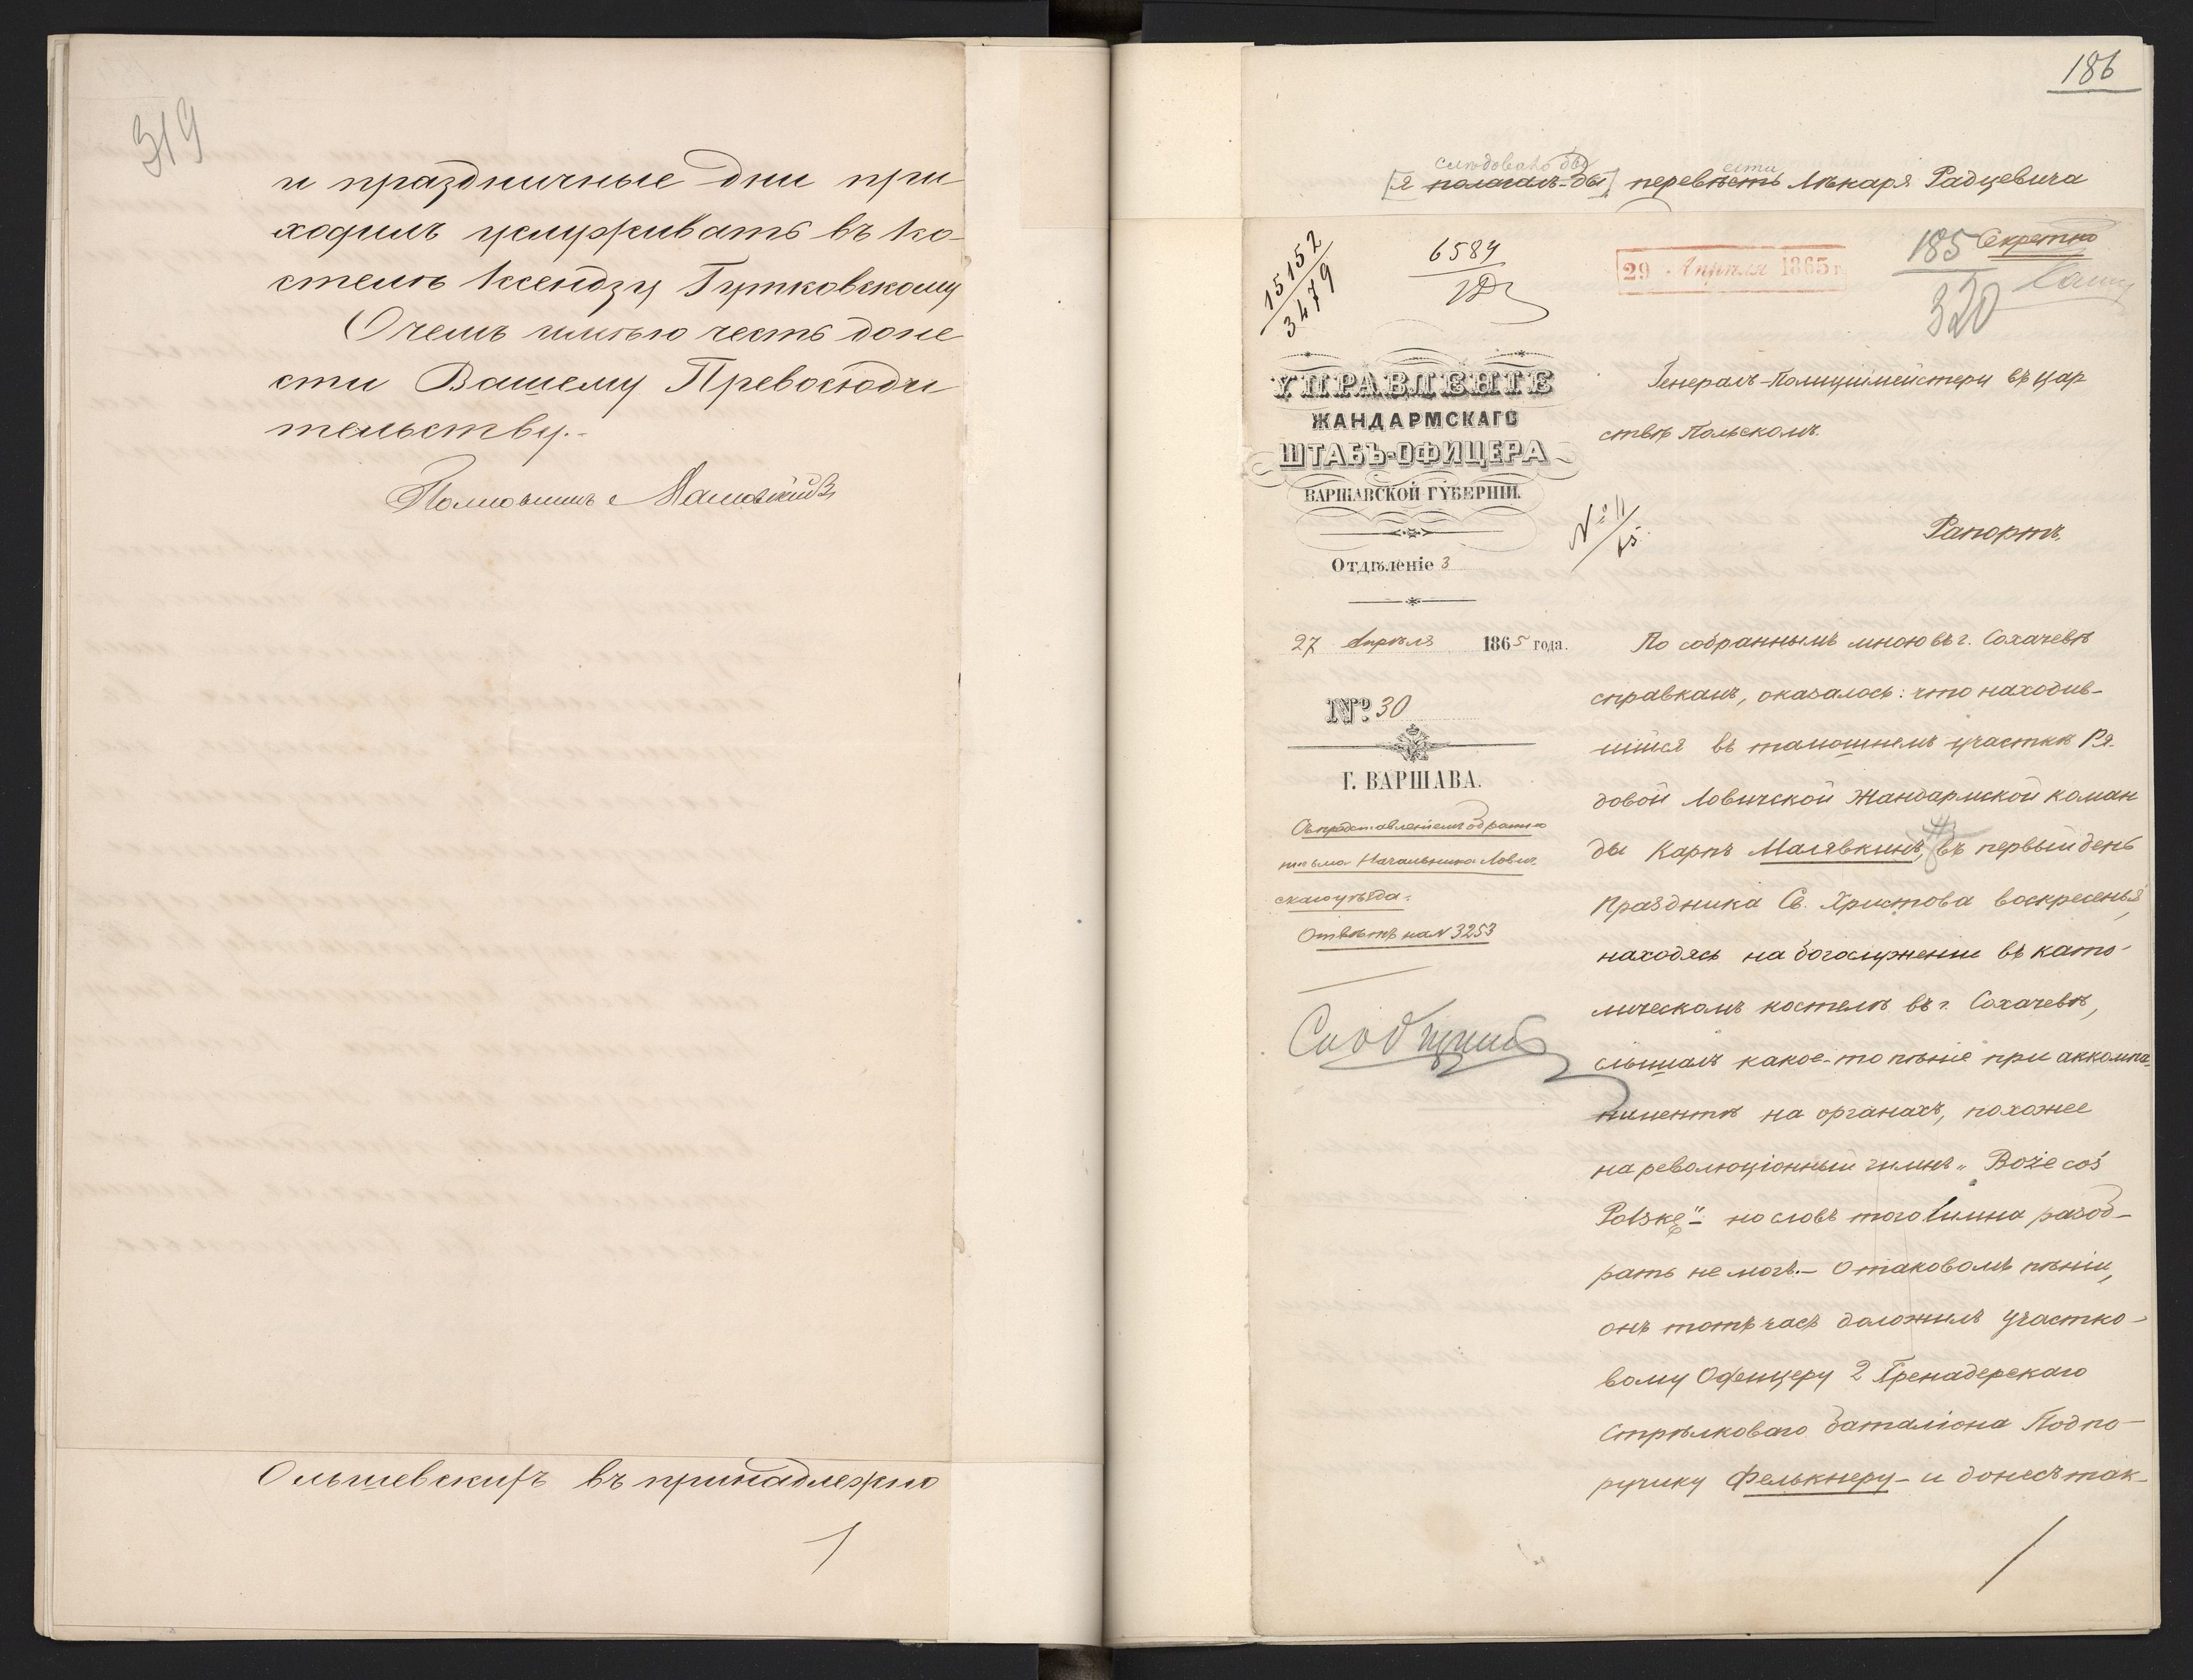 319
и праздничные дни при
ходилъ услуживать въ ко-
стелѣ Ксендзу Гутковскому
О чемъ имѣю честь доне
сти Вашему Превосходи
тельству.-
Полковникъ
Ольшевскихъ въ принадлежно
186
слѣдовало бы
[я полагалъ-бы] перевѣсть Лѣкаря Радцевича
15152
3479
6584
29 Апрѣля 1865 г
185 Секретно
320
УПРАВЛЕНІЕ
ЖАНДАРМСКАГО
ШТАБЪ-ОФИЦЕРА
ВАРШАВСКОЙ ГУБЕРНІИ.
Отдѣленіе 3
27 Апрѣля 1865 года.
№ 30
Г. ВАРШАВА.
Съ представленіемъ обратно
письма Начальника Лович
скаго уѣзда.
Отвѣтъ на N 3253
Генералъ-Полиціймейстеру въ Цар
ствѣ Польскомъ.
Рапортъ.
По собраннымъ мною въ г. Сохачевѣ
справкамъ, оказалось: что находив-
шійся въ тамошнемъ участкѣ Ря-
довой Ловичской Жандармской коман
ды Карпъ Малявкинъ, въ первый день
Праздника Св. Христова воскресенья,
находясь на богослуженіи въ като-
лическомъ костелѣ въ г. Сохачевѣ,
слышалъ какое-то пѣніе при аккомпа-
ниментѣ на органахъ, похожее
на революціонный гимнъ „Boże coś
Polskę" - но словъ того гимна разоб-
рать не могъ. - О таковомъ пѣніи,
онъ тотъ часъ доложилъ Участко-
вому Офицеру 2 Гренадерскаго
Стрѣлковаго баталіона Подпо-
ручику Фелькнеру - и донесъ так-